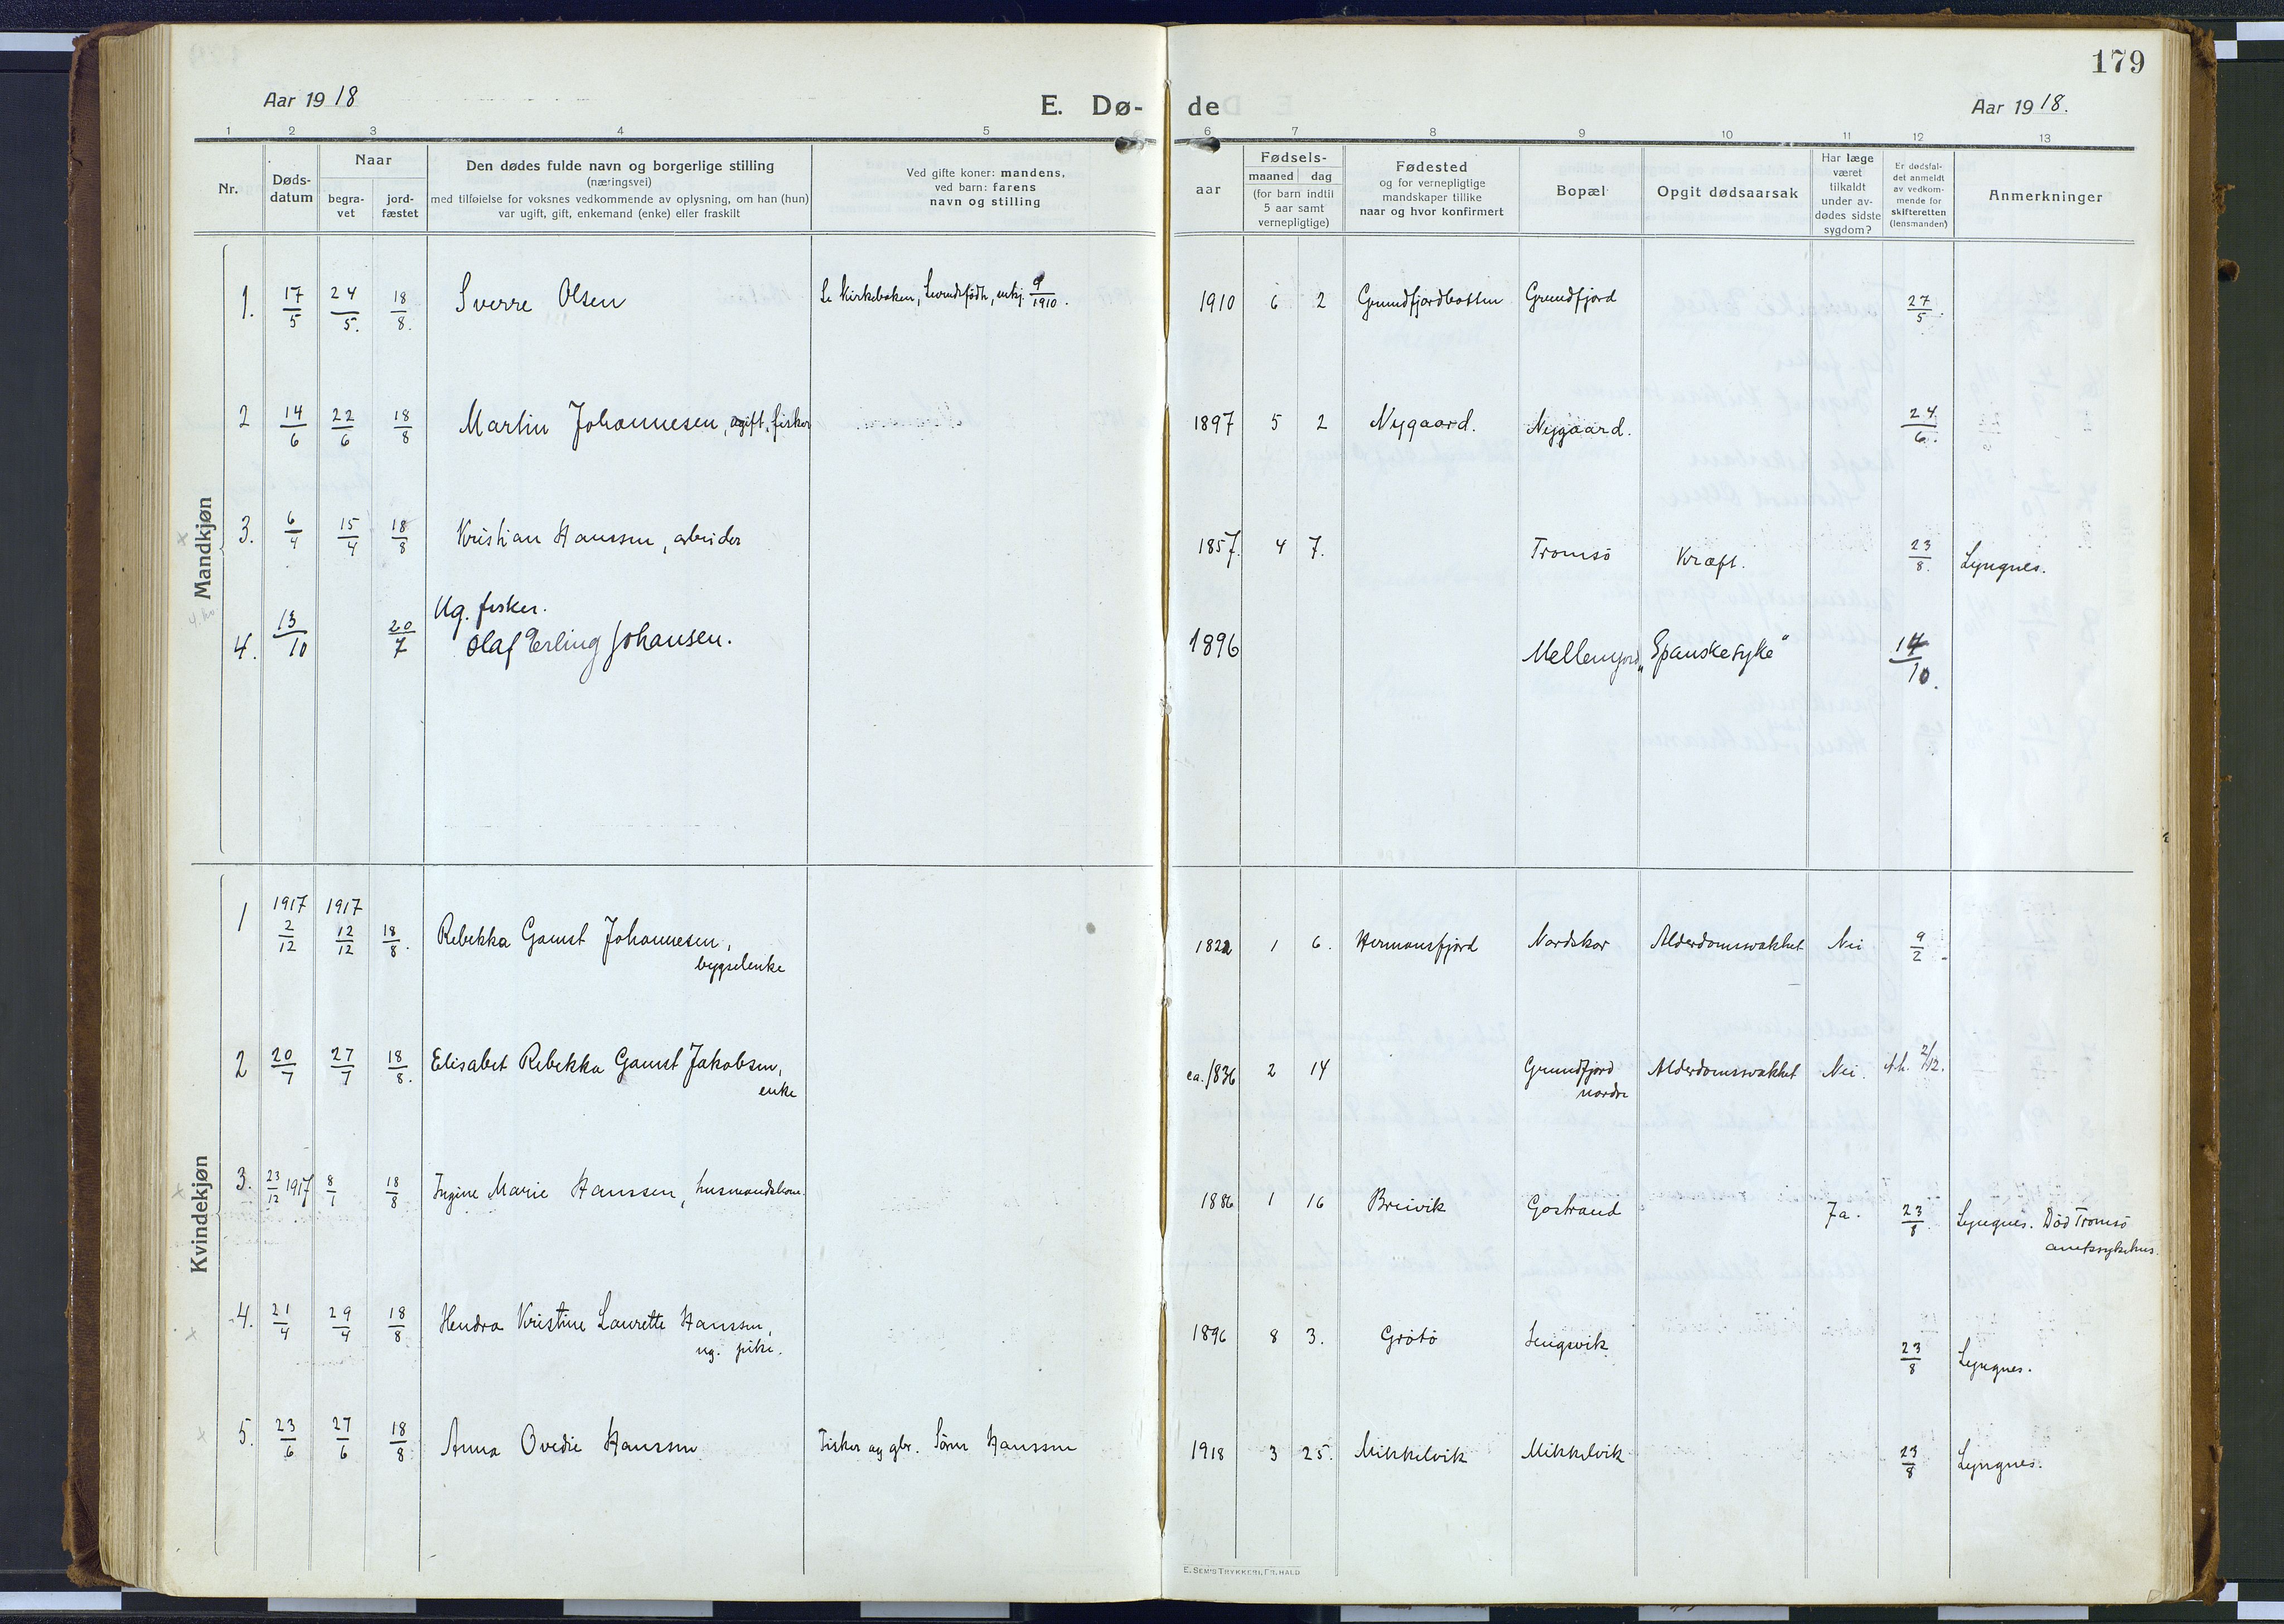 179
Aar 1918
E. Dø-
de
Aar 1918.
1 2 3 4 5 6 7 8 9 10 11 12 13
Nr.
Døds-
datum
Naar
begra-
vet
jord-
fæstet
Den dødes fulde navn og borgerlige stilling
(næringsvei)
med tilføielse for voksnes vedkommende av oplysning, om han (hun)
var ugift, gift, enkemand (enke) eller fraskilt
Ved gifte koner: mandens,
ved barn: farens
navn og stilling
aar
Fødsels-
maaned dag
(for barn indtil
5 aar samt
vernepligtige)
Fødested
og for vernepligtige
mandskaper tillike
naar og hvor konfirmert
Bopæl
Opgit dødsaarsak
Har læge
været
tilkaldt
under av-
dødes sidste
sygdom?
Er dødsfal-
det anmeldt
av vedkom-
mende for
skifteretten
(lensmanden)
Anmerkninger
Mandkjøn
1. 17/5 24/5. 18/8. Sverre Olsen Se kirkeboken, Levendefødte, 9/1910. 1910 6 2 Grundfjordbotten Grundfjord 27/5.
2 14/6 22/6 18/8 Martin Johannesen, ugift, fisker 1897 5 2 Nygaard. Nygaard. 24/6.
3. 6/4 15/4 18/8 Kristian Hanssen, arbeider 1857. 4 7. Tromsö Kræft. 23/8. Lyngnes.
Ug. fisker.
4. 13/10 20/7 Olaf Erling Johansen. 1896 Mellemjord „Spanskesyke“ 14/10.
Kvindekjøn
1917 1917
1 2/12 12/12 18/8. Rebekka Gamst Johannesen, 1822 1 6. Hermansfjord Nordskar Alderdomssvakhet Nei 9/2
bygselenke
2 20/7 27/7 18/8. Elisabet Rebekka Gamst Jakobsen, ca. 1836 2 14 Grundfjord Alderdomssvakhet Nei. 2/12.
enke nordre
3. 23/12 1917 8/1 18/8 Ingine Marie Hanssen, husmandskone. 1886 1 16 Breivik Gøstrand Ja. 23/8 Lyngnes. Död Tromsö
amtssykehus.
4. 21/4 29/4 18/8 Hendra Kristine Laurette Hanssen, 1896 8 3. Grötö Lengsvik 23/8 Lyngnes.
ug. pike.
5. 23/6 27/6 18/8 Anna Ovedie Hanssen Fisker og gbr. Sören Hanssen 1918 3 25. Mikkelvik Mikkelvik 23/8 Lyngnes.
E. SEM'S TRYKKERI, FR. HALD